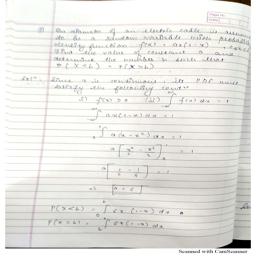 An diameter of an electric cable is assumed
to be a random variable with probability
density function f(x) = ax(1-x)
Find the value of constant a and
determine the number b such that
P(X<b) = P(X>b)
Since a is continuous, its PDF must
satisfy the following
i) f(x) ≥ 0 ii) ∫ f(x) dx = 1
∫ ax(1-x) dx = 1
∫ a(x-x²) dx = 1
a [x²/2 - x³/3] = 1
a [1/2 - 1/3] = 1
a = 6
P(X<b) = ∫ 6x(1-x) dx
P(X>b) = ∫ 6x(1-x) dx
Scanned with CamScanner